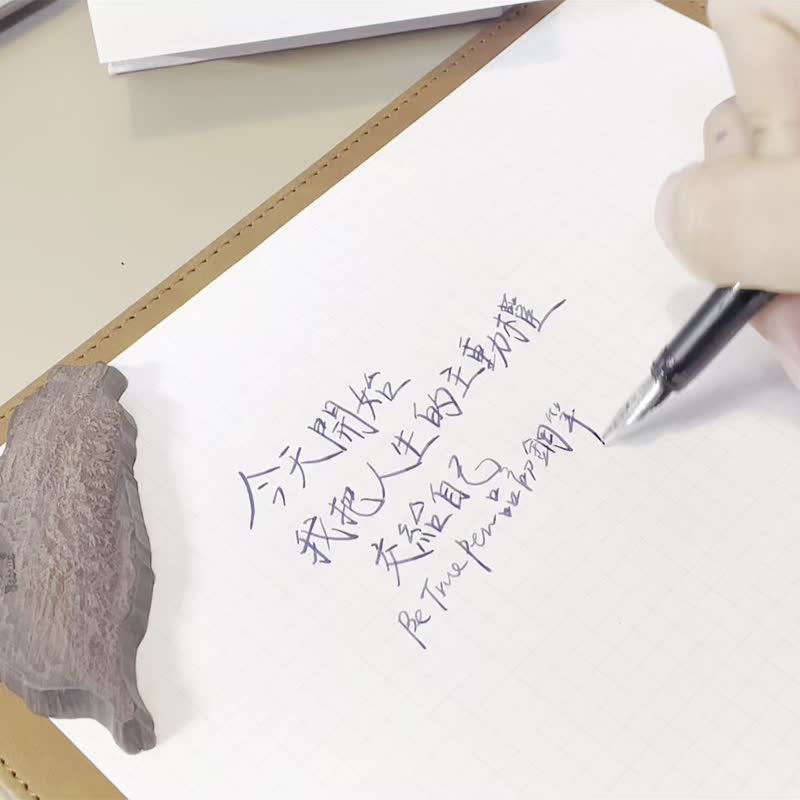 今天開始
我把人生的主動權
交給自己
Be True Pen 品的鋼筆